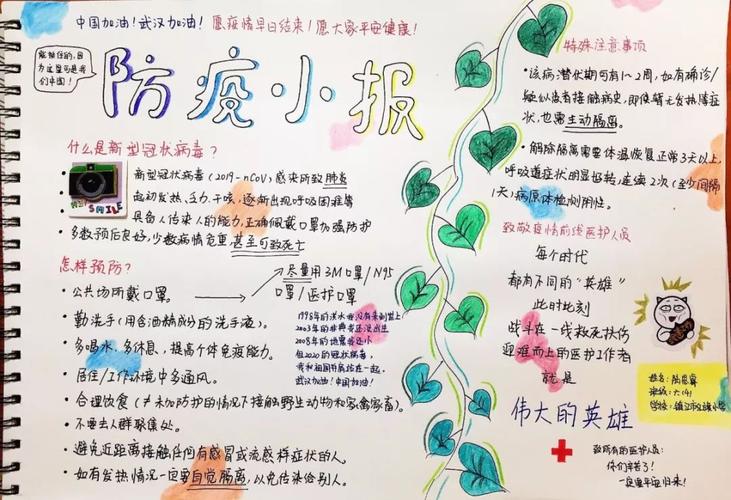 中国加油！武汉加油！愿疫情早日结束！愿大家平安健康！
能赢的，因
为这里可是我
们中国！
防疫小报
什么是新型冠状病毒？
新型冠状病毒（2019-nCoV）感染所致肺炎
起初发热、乏力、干咳、逐渐出现呼吸困难
具备人传染人的能力，正确佩戴口罩加强防护
多数预后良好，少数病情危重，甚至可致死亡
SMILE
怎样预防？
公共场所戴口罩。
尽量用3M口罩/N95
口罩/医护口罩
勤洗手（用含酒精成分的洗手液）。
多喝水、多休息，提高个体免疫能力。
居住/工作环境中多通风。
合理饮食（≠未加防护的情况下接触野生动物和家禽家畜）。
不要去人群聚集处。
避免近距离接触任何有感冒或流感样症状的人。
如有发热情况一定要自觉隔离，以免传染给别人。
1998年的洪水我没有来到世上
2003年的非典我还没出生
2008年的地震我还小
但2020的冠状病毒，
我和祖国母亲站在一起，
武汉加油！中国加油！
特殊注意事项
该病潜伏期可有1~2周，如有确诊/
疑似患者接触病史，即使暂无发热等症
状，也需主动隔离。
解除隔离需要体温恢复正常3天以上，
呼吸道症状明显好转，连续2次（至少间隔
1天）病原体检测阴性。
致敬疫情前线医护人员
每个时代
都有不同的“英雄”
此时此刻
战斗在一线救死扶伤
迎难而上的医护工作者
就是
伟大的英雄
姓名：
班级：六（4）
学校：
致所有的医护人员：
你们辛苦了！
一定要平安归来！